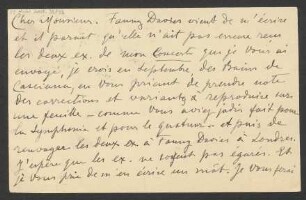 Cher Monsieur. Fanny Davies vient de m'écrire
et il paraît qu'elle n'ait pas encore reçu
les deux ex. de mon Concerto que je vous ai
envoyé, je crois en Septembre, des Bains de
Casciana, en vous priant de prendre note
des corrections et variantes à reproduire sur
une feuille – comme vous aviez jadis fait pour
la Symphonie et pour le quatuor – et puis de
renvoyer les deux ex à Fanny Davies à Londres.
J'espère que les ex. ne soient pas égarés. Et
je vous prie de m'en écrire un mot. Je vous serai